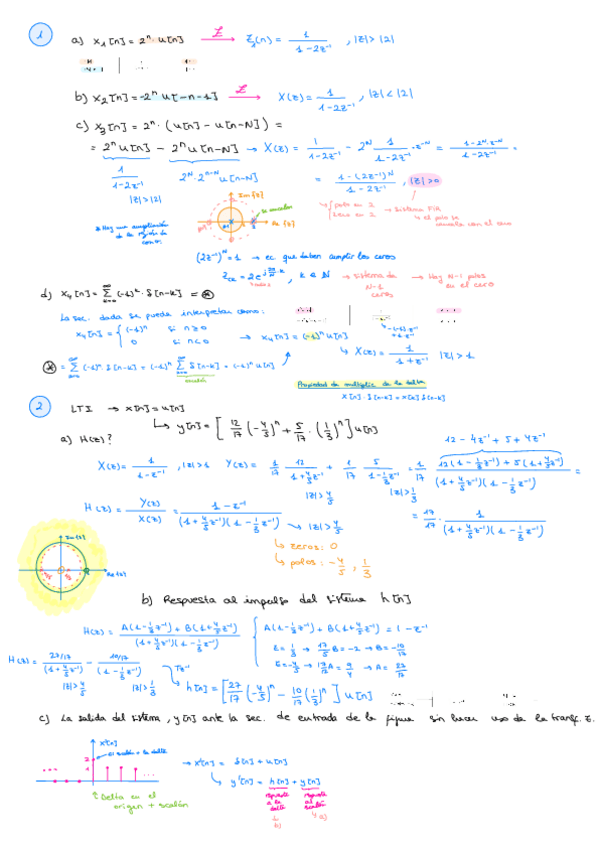 1
a) x₁[n] = 2ⁿ·u[n] →Z Z₁(n) = 1/(1-2z⁻¹) , |z|>|2|
b) x₂[n] = -2ⁿ u[-n-1] →Z X(z) = 1/(1-2z⁻¹) , |z|<|2|
c) x₃[n] = 2ⁿ·(u[n] - u[n-N]) =
= 2ⁿu[n] - 2ⁿu[n-N] → X(z) = 1/(1-2z⁻¹) - 2ᴺ 1/(1-2z⁻¹)·z⁻ᴺ = (1-2ᴺ·z⁻ᴺ)/(1-2z⁻¹) =
1/(1-2z⁻¹) 2ᴺ·2ⁿ⁻ᴺ u[n-N] = (1-(2z⁻¹)ᴺ)/(1-2z⁻¹) , |z|>0
|z|>|2|
Im{z}
Re{z}
se cancelan
polo en 2
zero en 2 → Sistema FIR
↳ el polo se cancela con el cero
* Hay una ampliación de la región de conv.
(2z⁻¹)ᴺ=1 → ec. que deben cumplir los ceros
→ Sistema de N-1 ceros → Hay N-1 polos en el cero
d) x₄[n] = Σ (-1)ᵏ·δ[n-k] = ⊛
La sec. dada se puede interpretar como:
x₄[n] = { (-1)ⁿ si n≥0
0 si n<0 → x₄[n] = (-1)ⁿu[n]
↳ X(z) = 1/(1+z⁻¹) |z|>1
⊛ = Σ (-1)ⁿ·δ[n-k] = (-1)ⁿ Σ δ[n-k] = (-1)ⁿu[n]
escalón
Propiedad de multiplic. de la delta
x[n]·δ[n-k] = x[k]δ[n-k]
2
LTI → x[n]=u[n]
↳ y[n] = [12/17(-4/3)ⁿ + 5/17·(1/3)ⁿ]u[n]
a) H(z)?
12 - 4z⁻¹ + 5 + 4z⁻¹
X(z) = 1/(1-z⁻¹) , |z|>1 Y(z) = 1/17 12/(1+4/5z⁻¹) + 1/17 5/(1-1/3z⁻¹) = 1/17 (12(1-1/3z⁻¹)+5(1+4/5z⁻¹))/((1+4/5z⁻¹)(1-1/3z⁻¹)) =
|z|>4/5 |z|>1/3
H(z) = Y(z)/X(z) = (1-z⁻¹)/((1+4/5z⁻¹)(1-1/3z⁻¹)) → |z|>4/5
= 17/17 · 1/((1+4/5z⁻¹)(1-1/3z⁻¹))
↳ zeros: 0
↳ polos: -4/5, 1/3
Im{z}
Re{z}
b) Respuesta al impulso del sistema h[n]
H(z) = (A(1-1/3z⁻¹)+B(1+4/5z⁻¹))/((1+4/5z⁻¹)(1-1/3z⁻¹)) { A(1-1/3z⁻¹)+B(1+4/5z⁻¹) = 1-z⁻¹
z=1/3 → 17/5 B=-2 → B=-10/17
z=-4/5 → 17/12 A=9/4 → A=27/17
H(z) = (27/17)/(1+4/5z⁻¹) - (10/17)/(1-1/3z⁻¹) TZ⁻¹
|z|>4/5 |z|>1/3
↳ h[n] = [27/17(-4/5)ⁿ - 10/17(1/3)ⁿ]u[n]
c) La salida del sistema, y[n] ante la sec. de entrada de la figura sin hacer uso de la transf. Z.
x'[n]
el escalón + la delta
2
1
↑ Delta en el origen + escalón
→ x'[n] = δ[n] + u[n]
↳ y'[n] = h[n] + y[n]
respuesta a la delta
respuesta al escalón
b)
a)